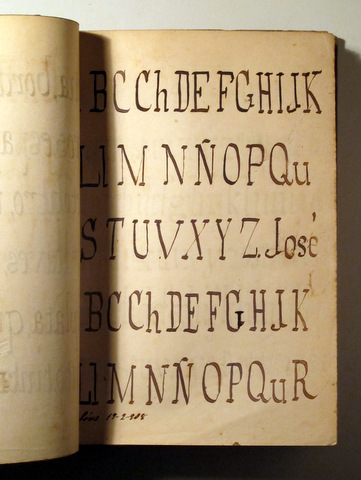 BCChDEFGHIJK
LlMNÑOPQu
STUVXYZ.José
BCChDEFGHIJK
Ll·MNÑOPQuR